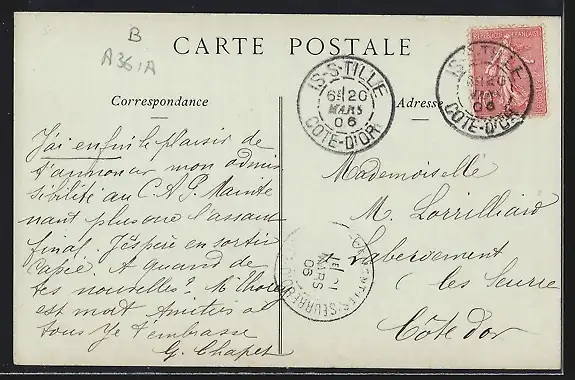 B
A361A
CARTE POSTALE
Correspondance
Adresse
IS-S-TILLE
6E 20
MARS
06
COTE-D'OR
IS-S-TILLE
20
06
COTE-D'OR
REPUBLIQUE FRANÇAISE
J'ai enfin le plaisir de
t'annoncer mon admis
sibilité au C.A.P. Mainte
nant plus que l'assaut
final. J'espère en sortir
A quand de
tes nouvelles? M. Thorey
est mort Amitiés à
tous Je t'embrasse
G. Chapet
Mademoiselle
M. Lorrilliard
à Labergement
les Seurre
Côte d'or
MARS
06